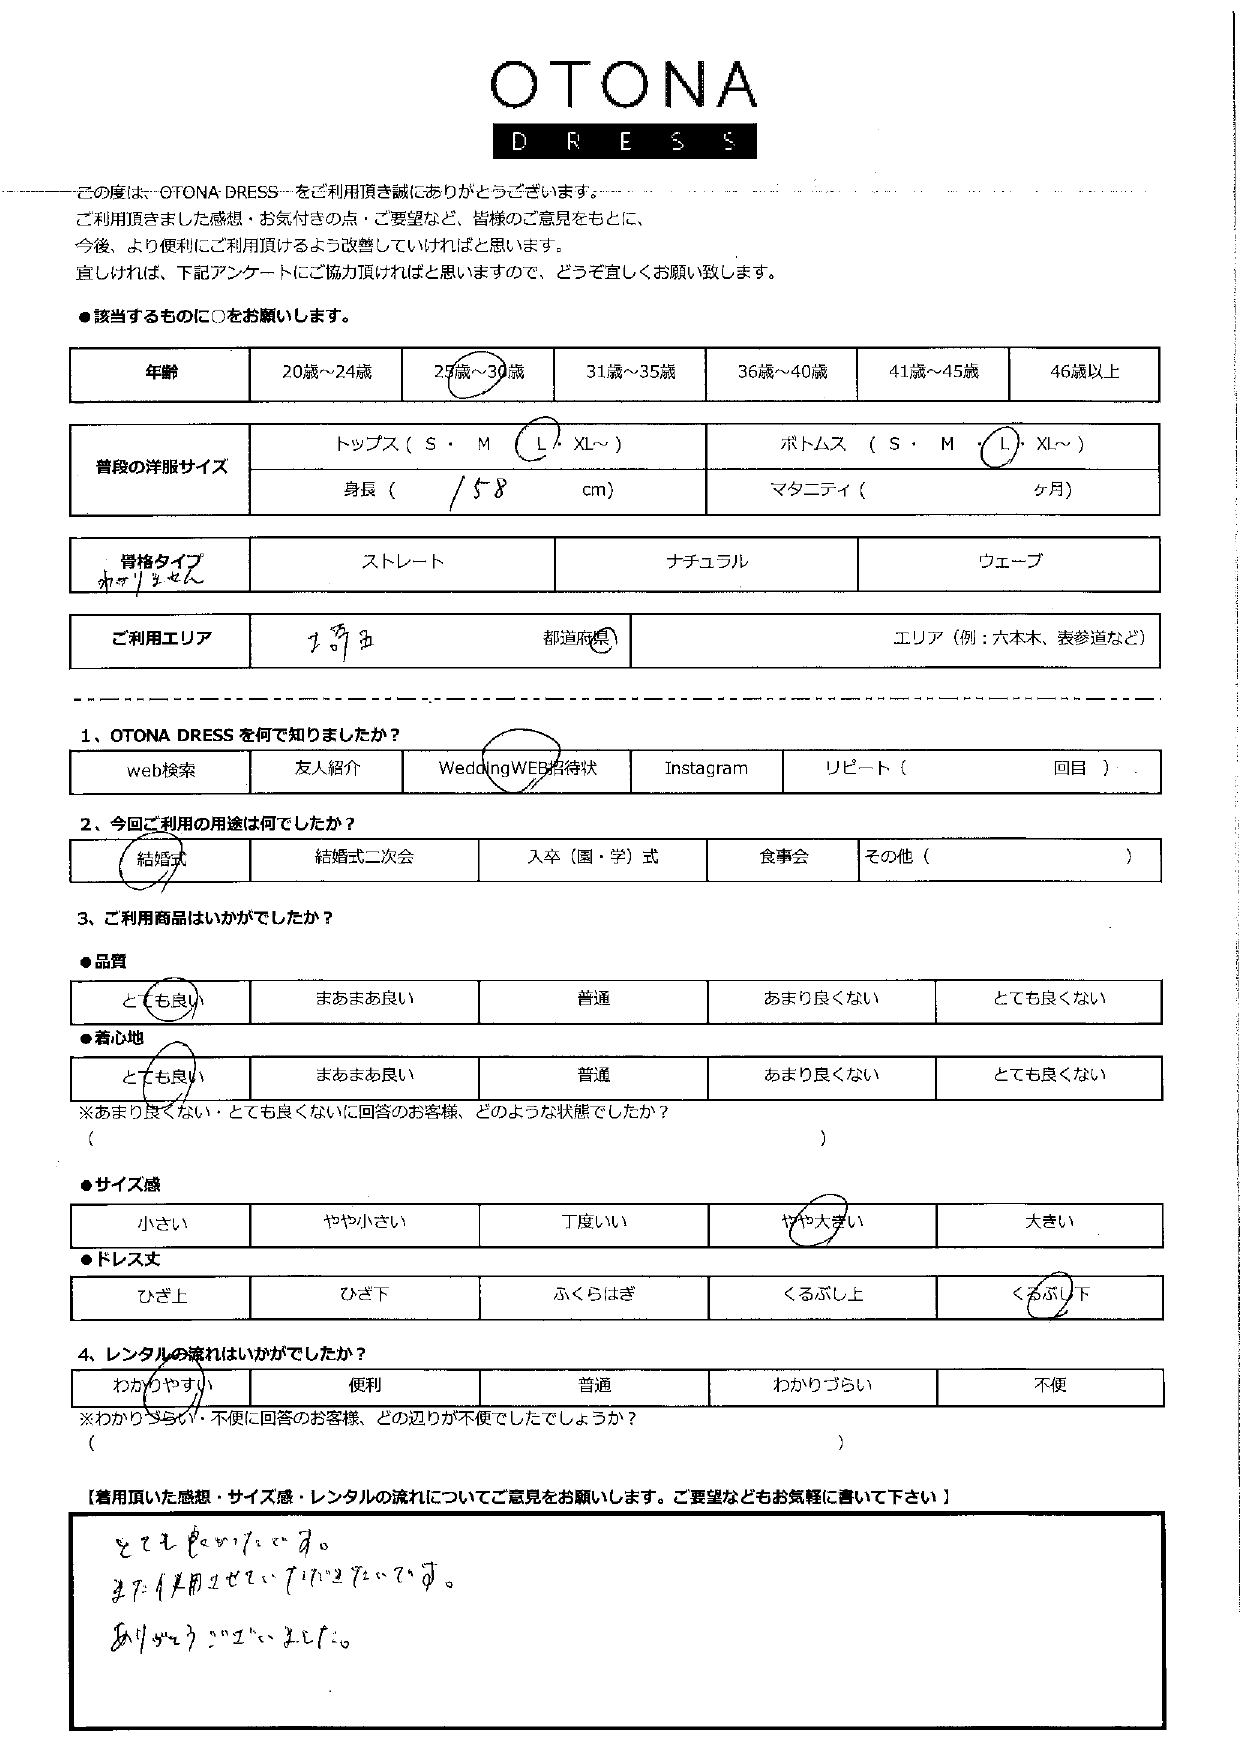 OTONA
DRESS
この度は、OTONA DRESS をご利用頂き誠にありがとうございます。
ご利用頂きました感想・お気付きの点・ご要望など、皆様のご意見をもとに、
今後、より便利にご利用頂けるよう改善していければと思います。
宜しければ、下記アンケートにご協力頂ければと思いますので、どうぞ宜しくお願い致します。
●該当するものに○をお願いします。
年齢 20歳～24歳 25歳～30歳 31歳～35歳 36歳～40歳 41歳～45歳 46歳以上
普段の洋服サイズ トップス ( S ・ M ・ L ・ XL～ ) ボトムス ( S ・ M ・ L ・ XL～ )
身長 ( 158 cm) マタニティ ( ヶ月)
骨格タイプ ストレート ナチュラル ウェーブ
わかりません
ご利用エリア 埼玉 都道府県 エリア（例：六本木、表参道など）
1、OTONA DRESS を何で知りましたか？
web検索 友人紹介 WeddingWEB招待状 Instagram リピート（ 回目 ）
2、今回ご利用の用途は何でしたか？
結婚式 結婚式二次会 入卒（園・学）式 食事会 その他（ ）
3、ご利用商品はいかがでしたか？
●品質
とても良い まあまあ良い 普通 あまり良くない とても良くない
●着心地
とても良い まあまあ良い 普通 あまり良くない とても良くない
※あまり良くない・とても良くないに回答のお客様、どのような状態でしたか？
（ ）
●サイズ感
小さい やや小さい 丁度いい やや大きい 大きい
●ドレス丈
ひざ上 ひざ下 ふくらはぎ くるぶし上 くるぶし下
4、レンタルの流れはいかがでしたか？
わかりやすい 便利 普通 わかりづらい 不便
※わかりづらい・不便に回答のお客様、どの辺りが不便でしたでしょうか？
（ ）
【着用頂いた感想・サイズ感・レンタルの流れについてご意見をお願いします。ご要望などもお気軽に書いて下さい 】
とても良かったです。
また使用させていただきたいです。
ありがとうございました。